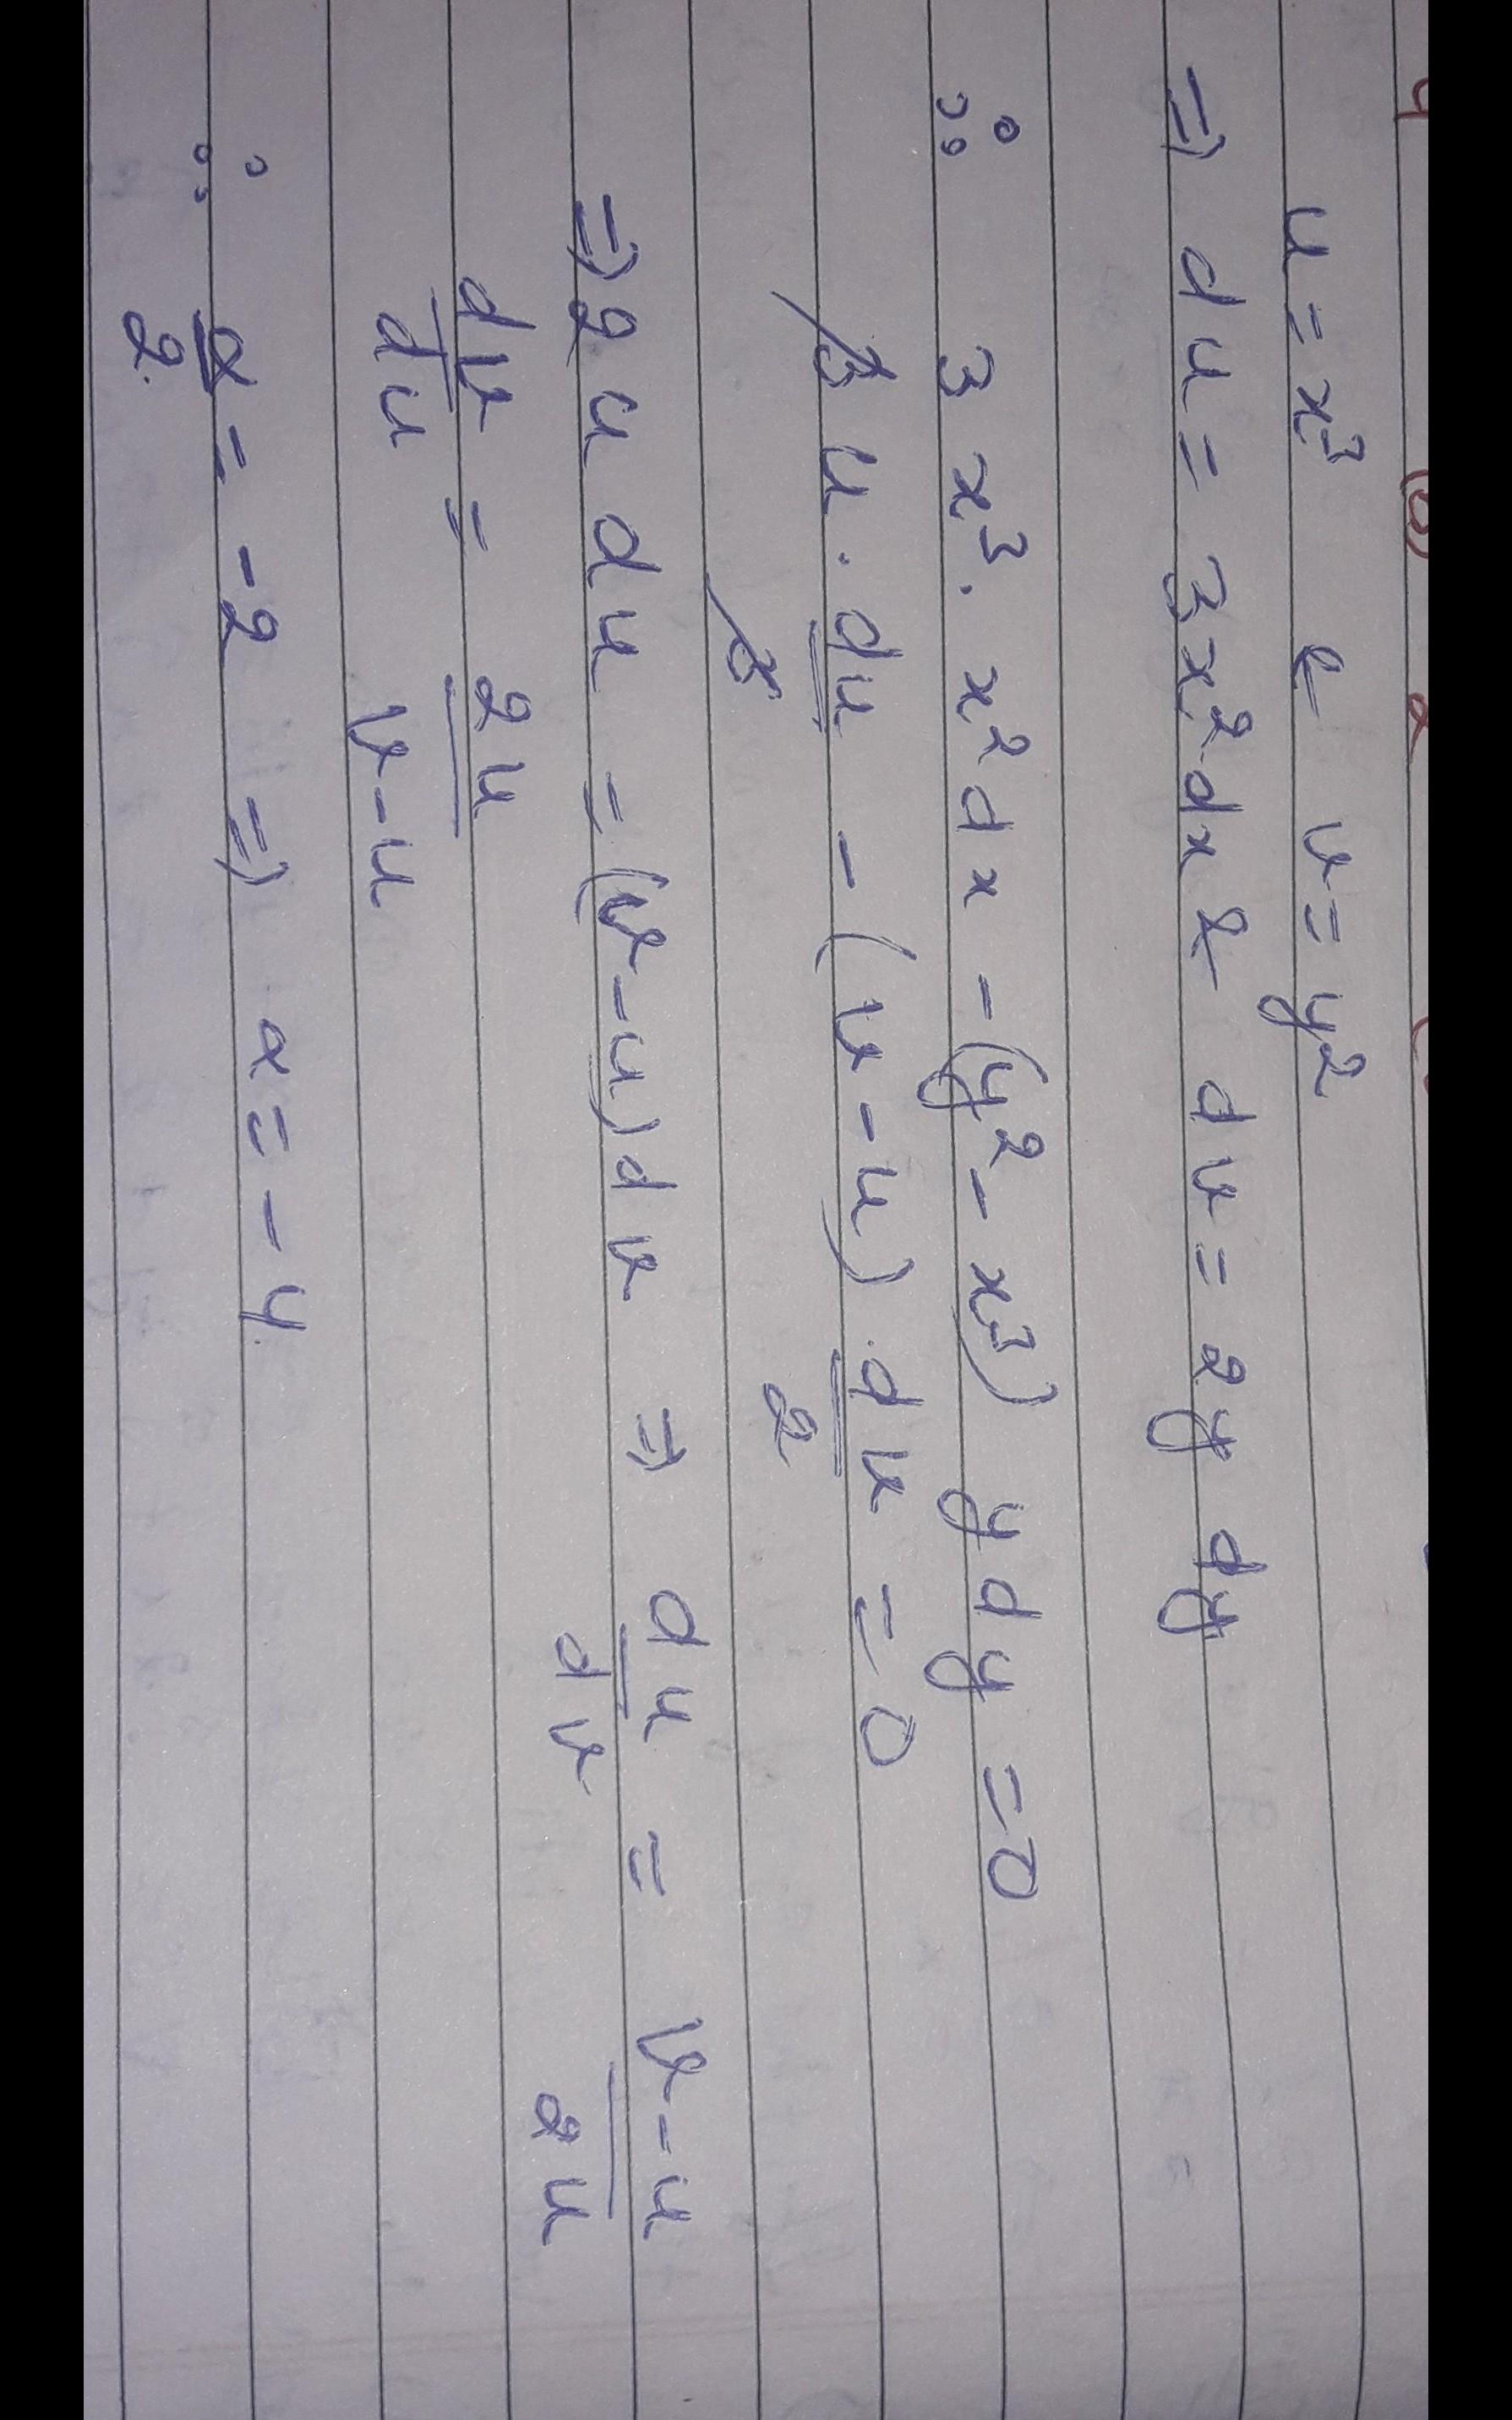 u = x³ & v = y²
⇒ du = 3x² dx & dv = 2y dy
∴ 3 x³. x² dx - (y² - x³) y dy = 0
3 u . du/3 - (v - u) . dv/2 = 0
⇒ 2 u du = (v - u) dv ⇒ du/dv = (v - u)/2u
dv/du = 2u/(v - u)
∴ α/2 = -2 ⇒ α = -4